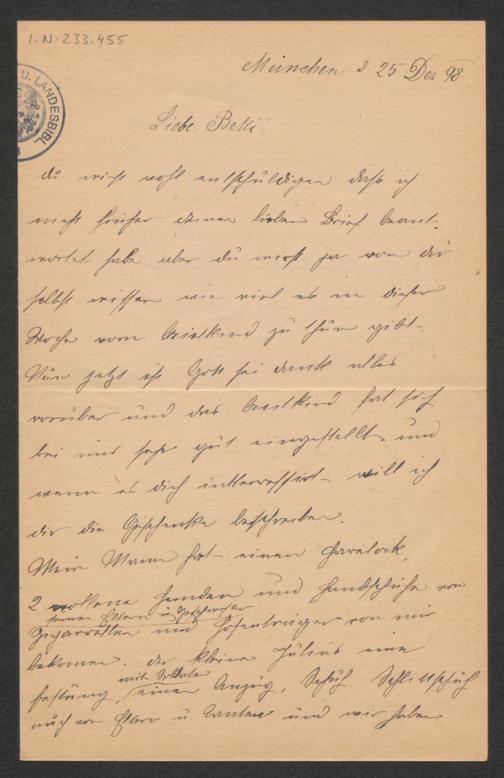 I.N.233.455
U. LANDESBIBL
München d. 25 Dez 98
Liebe Betti!
du wirst wohl entschuldigen daß ich
nicht früher deinen lieben Brief beant-
wortet habe aber du wirst ja von dir
selbst wissen wie viel es in dieser
Woche vom Cristkind zu thun gibt
Nun jetzt ist Gott sei dank alles
vorüber und das Cristkind hat sich
bei uns sehr gut eingestellt und
wenn es dich intteressirt will ich
dir die Geschenke beschreiben.
Mein Mann hat einen Havelock,
2 wollene Hemden und Handschuhe von
seinen Eltern u Geschwister
Zigarretten und Hosenträger von mir
bekomen. der kleine Julius eine
mit Soldaten
Festung, einen Anzug, Schuh Schlittschuh
auch von Eltern u Tanten und wir haben